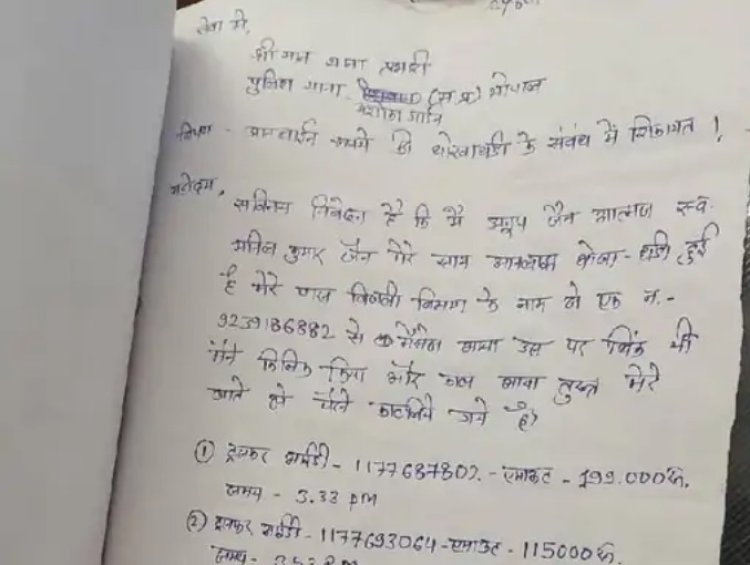 सेवा में,
श्री मान थाना प्रभारी
पुलिस थाना (म.प्र) भोपाल
अशोका गार्डन
विषय - आनलाईन रूपये की धोखाधडी के संबंध में शिकायत !
महोदय,
सविनय निवेदन है कि मैं अनूप जैन आत्मज स्व.
अनिल कुमार जैन मेरे साथ आनलाइन धोखा-धडी हुई
है मेरे पास बिजली विभाग के नाम से एक न.-
9239186882 से मैसेज आया उस पर लिंक थी
मैंने क्लिक किया और काल आया तुरन्त मेरे
खाते से पैसे काट लिये गये है।
(1) ट्रांसफर आईडी - 1177687802. - एमाउंट - 199.000रू.
समय - 3.33 PM
(2) ट्रांसफर आईडी - 1177693064 - एमाउंट - 115000रू.
समय -